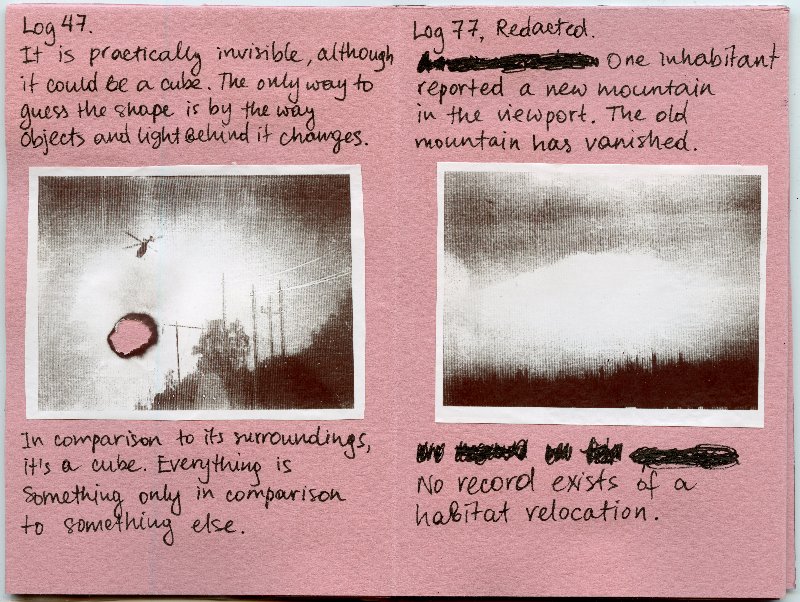 Log 47.
It is practically invisible, although
it could be a cube. The only way to
guess the shape is by the way
objects and light behind it changes.
In comparison to its surroundings,
it's a cube. Everything is
something only in comparison
to something else.
Log 77, Redacted.
One inhabitant
reported a new mountain
in the viewport. The old
mountain has vanished.
No record exists of a
habitat relocation.